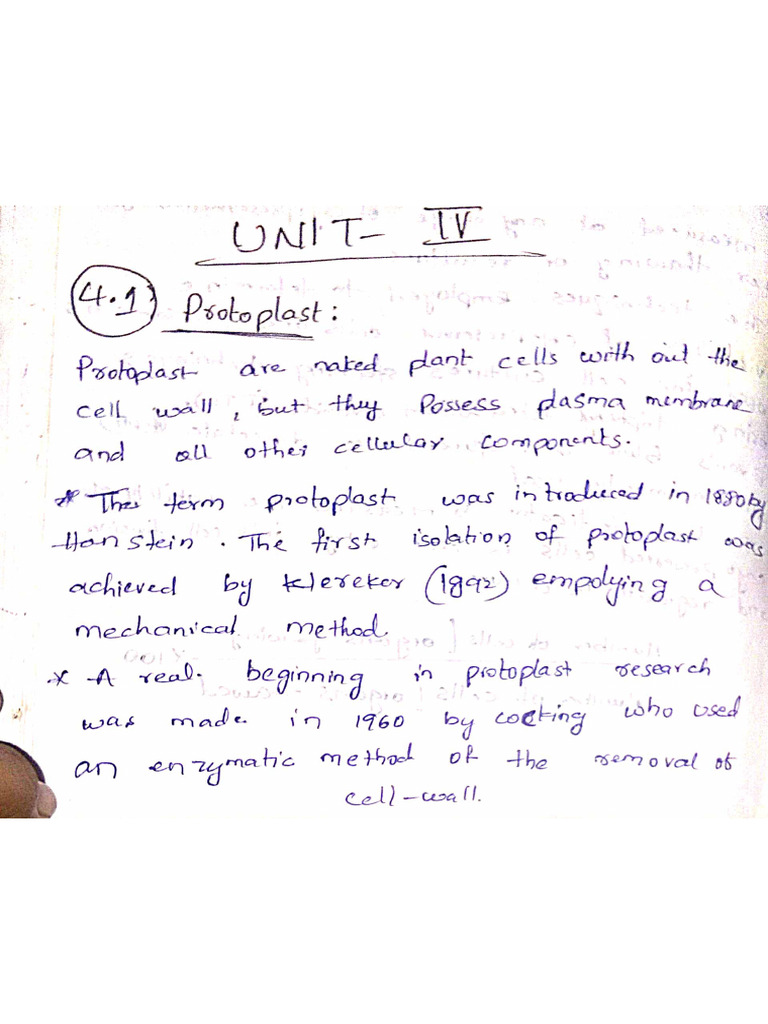 UNIT- IV
4.1 Protoplast:
Protoplast are naked plant cells with out the
cell wall, but they Possess plasma membrane
and all other cellular components.
* The term protoplast was introduced in 1880 by
Hanstein. The first isolation of protoplast was
achieved by Klereker (1892) empolying a
mechanical method.
* A real beginning in protoplast research
was made in 1960 by cocking who used
an enzymatic method of the removal of
cell-wall.